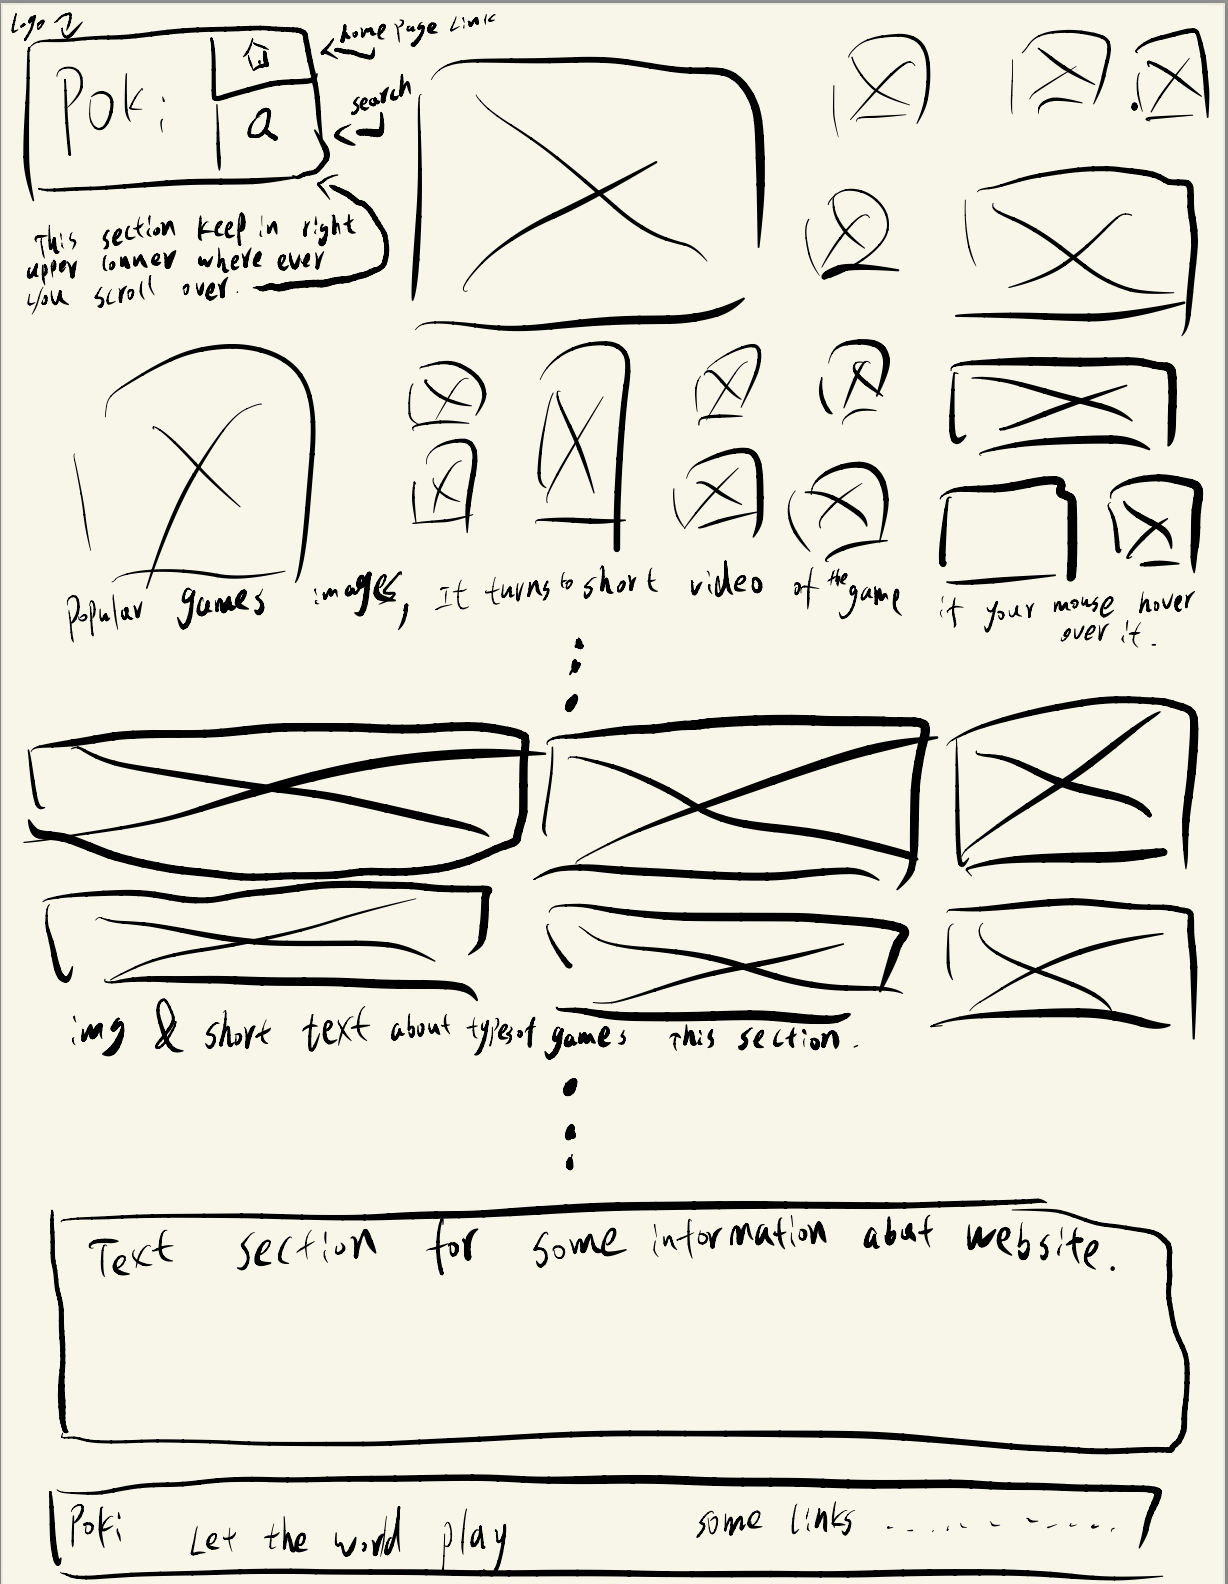 Logo
home page Link
Poki
search
This section keep in right
upper conner where ever
you scroll over.
Popular games images, It turns to short video of the game if your mouse hover
over it.
img & short text about types of games This section.
Text section for some information about website.
Poki Let the world play some links